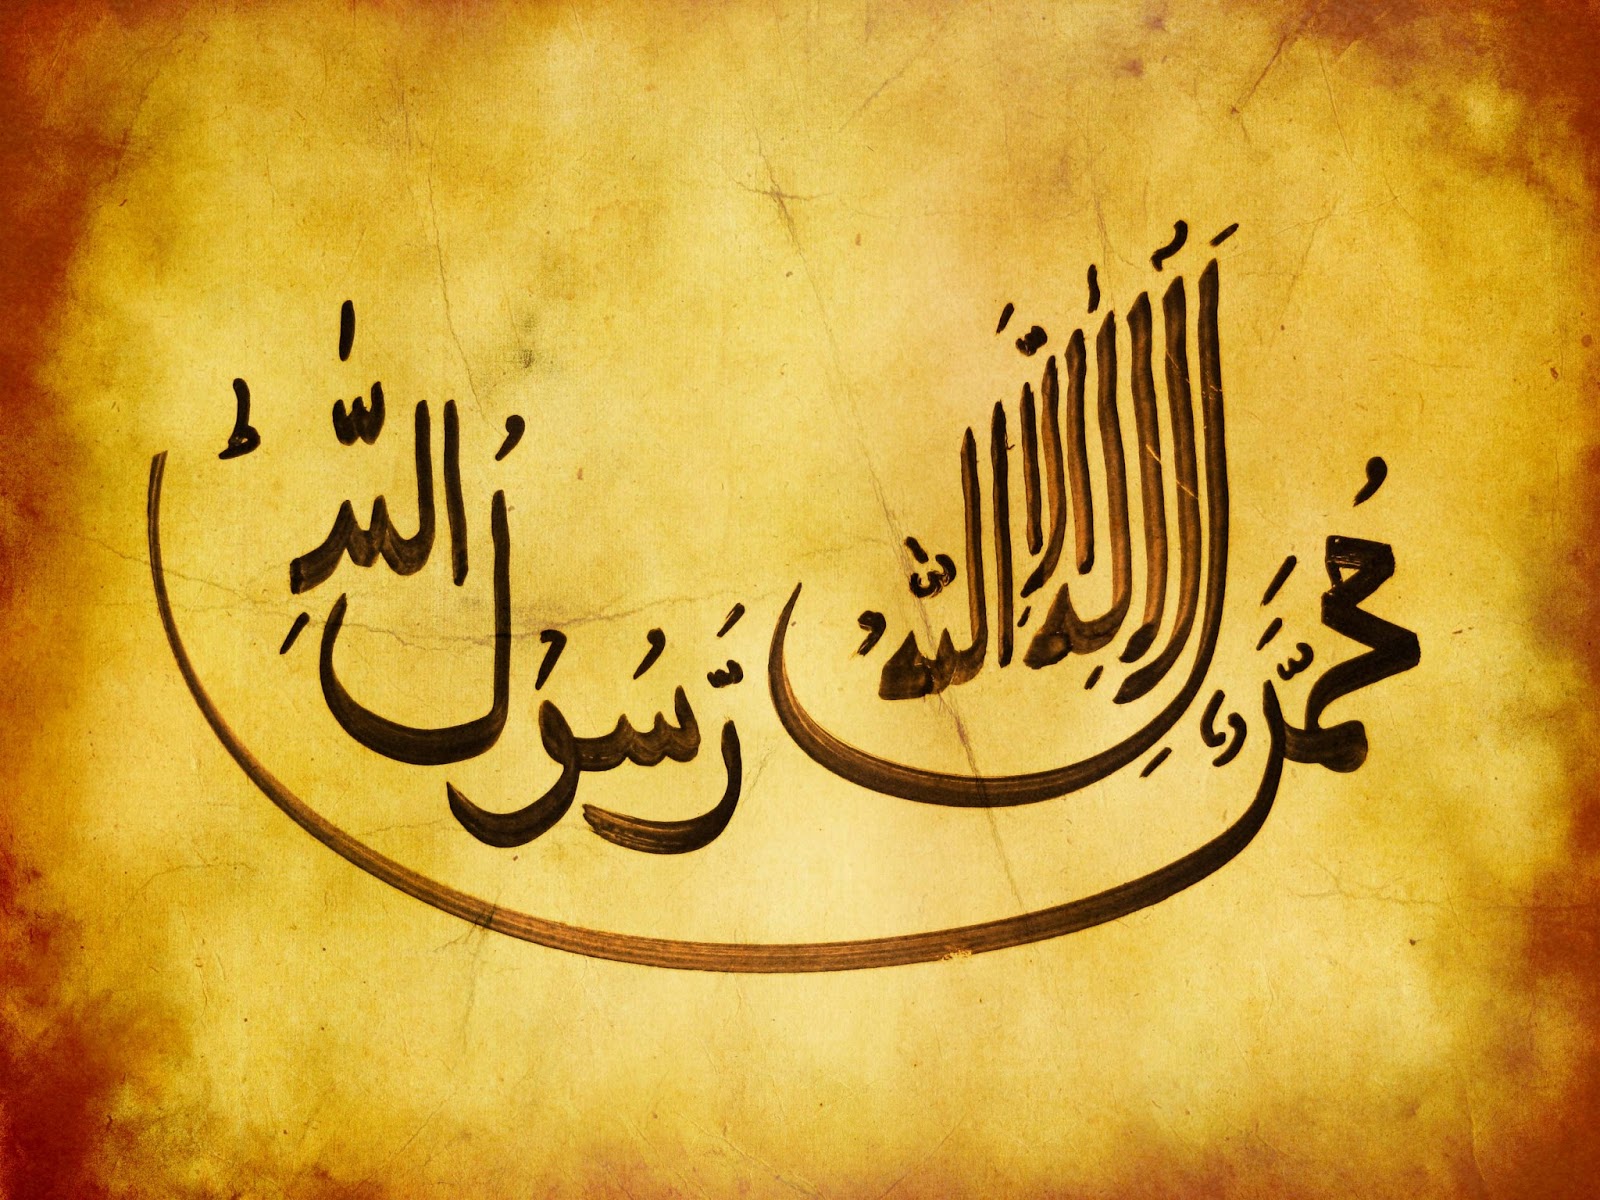 لَا إِلَهَ إِلَّا اللهُ مُحَمَّدٌ رَّسُوْلُ اللهِ